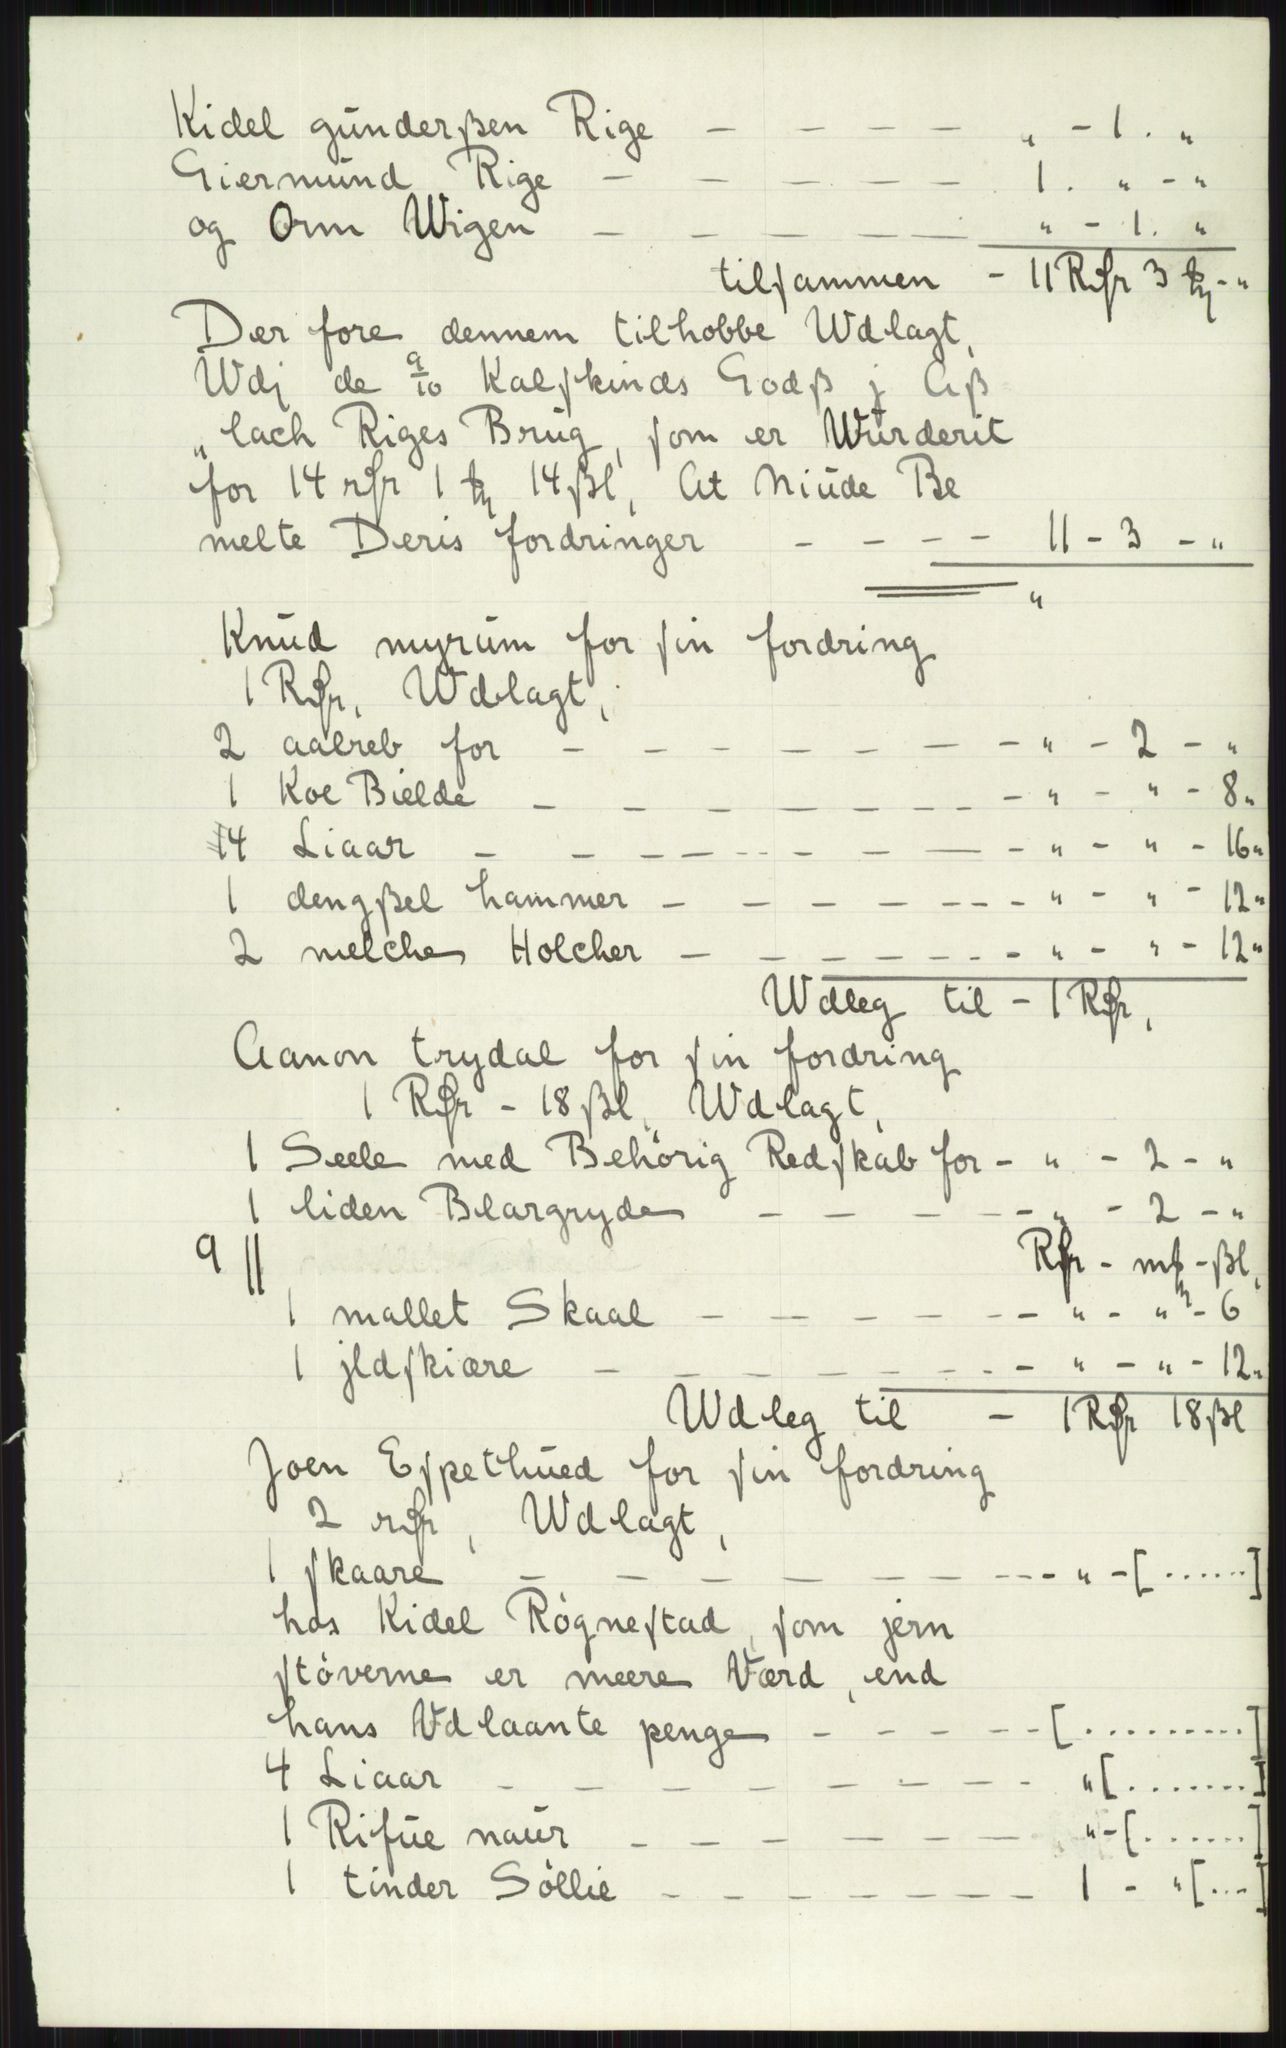 Kidel gúnderßen Rige — — — — „ - 1 . „
Giermúnd Rige — — — — — 1 . „ - „
og Orm Wigen — — — — — „ - 1. „
tilſammen - 11 Rdr 3 mk - „
Der fore dennem tilhobbe Wdlagt,
Wdj de 9/10 Kalſkinds Godß j Aß
„lach Riges Brúg, ſom er Wúrderit
for 14 rdr 1 mk 14 ßl, At Niúde Be
melte Deris fordringer - - - - 11 - 3 - „
„
Knúd myrúm for ſin fordring
1 Rdr, Wdlagt,
2 aalreb for — — — — — — - „ - 2 - „
1 Koe Bielde — — — — — — - „ - „ - 8„
14 Liaar — — — — — — — - „ - „ - 16„
1 dengßel hammer — — — — — - „ - „ - 12„
2 melche Holcher — — — — — - „ - „ - 12„
Wdleg til - 1 Rdr,
Aanon trydal for ſin fordring
1 Rdr - 18 ßl, Wdlagt,
1 Seele med Behörig Redſkab for - „ - 2 - „
1 liden Blargryde — — — — - „ - 2 - „
9 || Rdr - mk - ßl,
1 mallet Skaal — — — — — - „ - „ - 6
1 jldſkiære — — — — — - „ - „ - 12„
Wdleg til — 1 Rdr 18 ßl
Joen Eſpethúed for ſin fordring
2 rdr, Wdlagt,
1 ſkaare — — — — — — - „ - [......]
hos Kidel Rögneſtad, ſom jern
ſtöverne er meere Værd, end
hans Vdlaante penge — — — — - [.........]
4 Liaar — — — — — — — „ [.......]
1 Rifúe naúr — — — — — — „ - [......]
1 tinder Söllie — — — — — — 1 - „ [...]